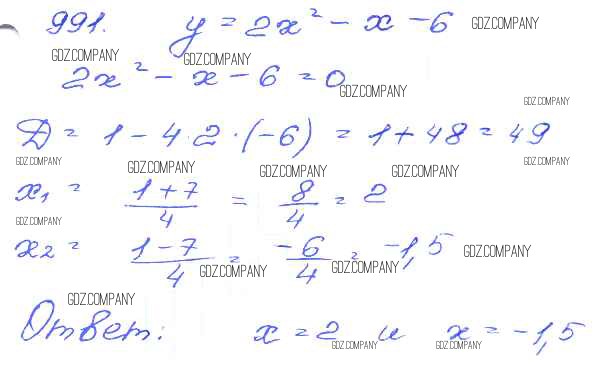 991. y = 2x² - x - 6 GDZ.COMPANY
GDZ.COMPANY GDZ.COMPANY
2x² - x - 6 = 0 GDZ.COMPANY
GDZ.COMPANY
D = 1 - 4·2·(-6) = 1 + 48 = 49
GDZ.COMPANY GDZ.COMPANY GDZ.COMPANY GDZ.COMPANY GDZ.COMPANY
x₁ = (1+7)/4 = 8/4 = 2
GDZ.COMPANY
x₂ = (1-7)/4 = -6/4 = -1,5 GDZ.COMPANY
GDZ.COMPANY GDZ.COMPANY
GDZ.COMPANY
Ответ: x = 2 и x = -1,5
GDZ.COMPANY GDZ.COMPANY